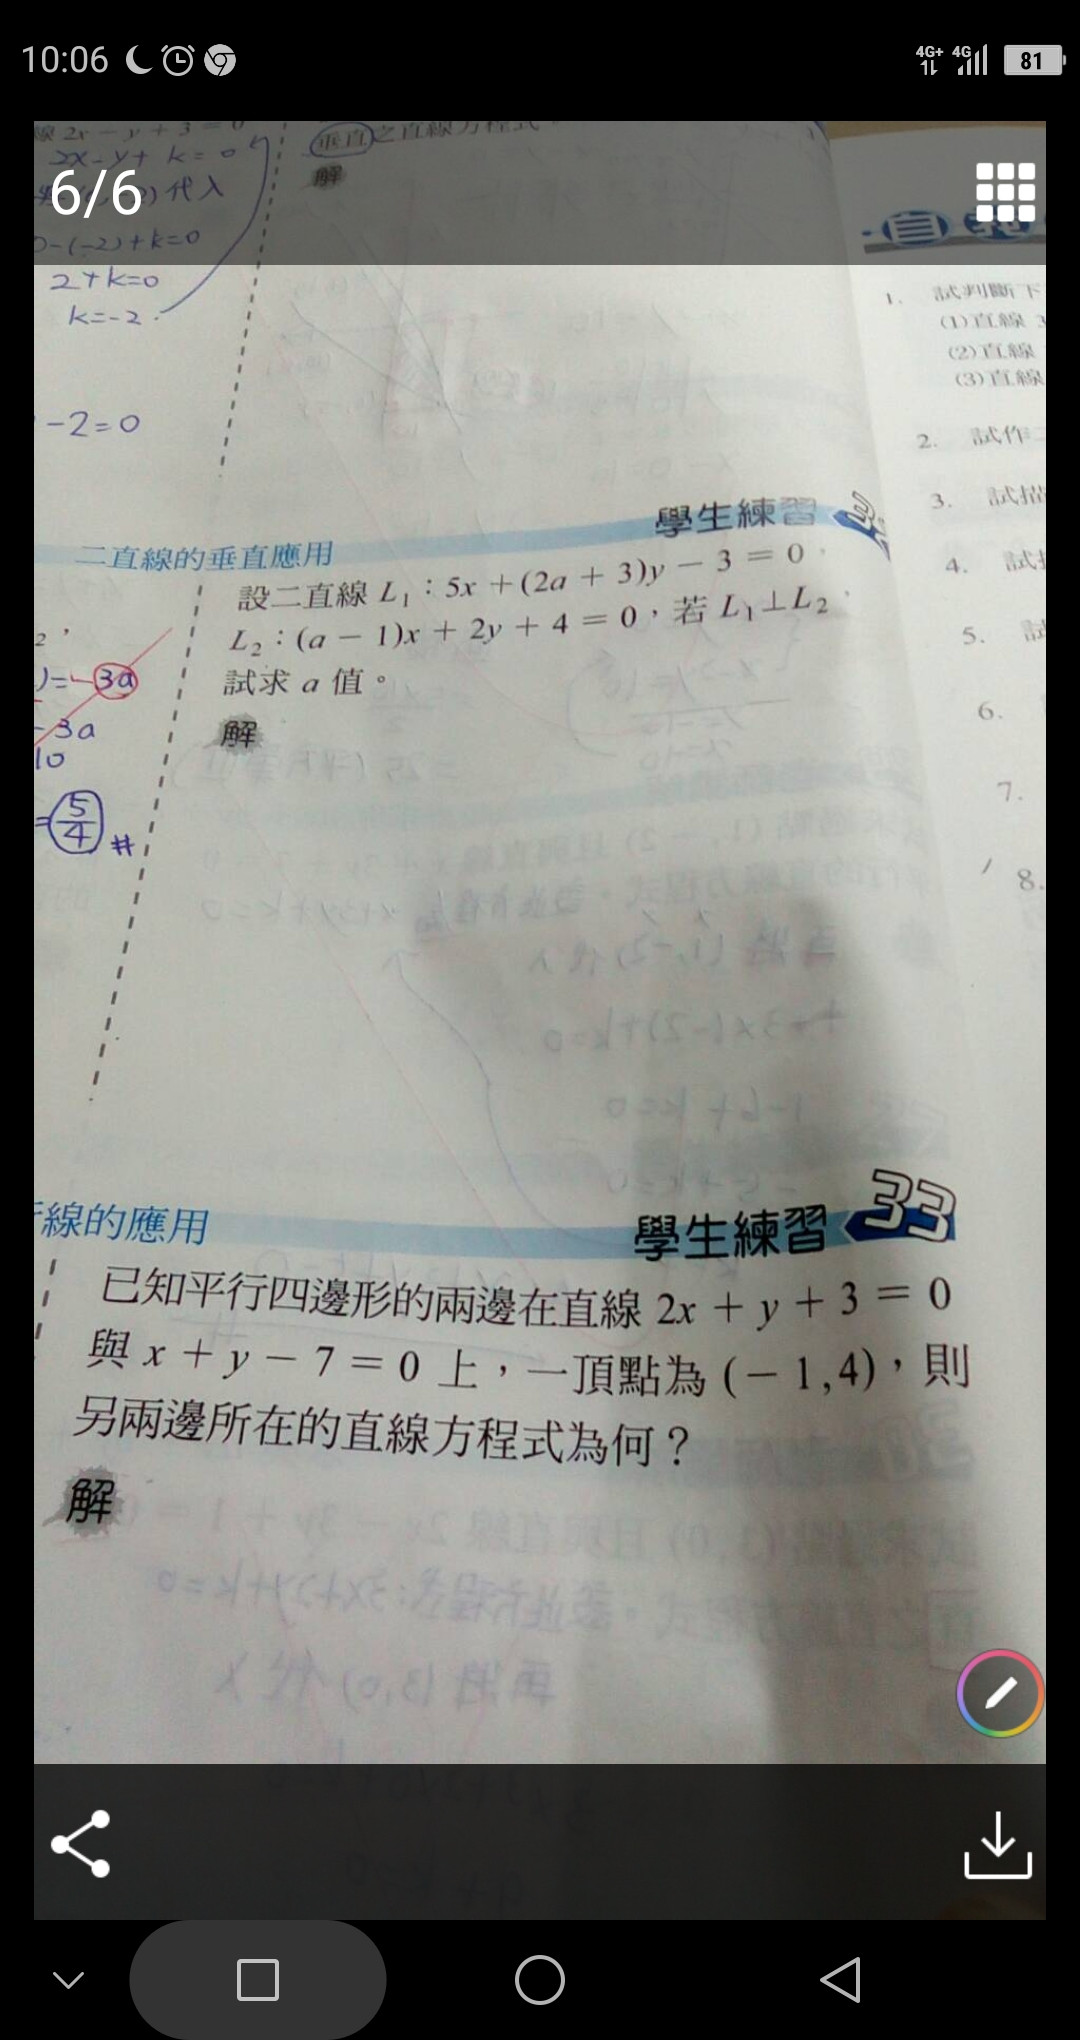 10:06
4G+ 4G 81
線 2x - y + 3 = 0
2x-y+ k=0
代入
0-(-2)+k=0
2+k=0
k=-2
-2=0
垂直之直線方程式。
解
6/6
自
1. 試判斷下
(1)直線 3
(2)直線
(3)直線
2. 試作二
3. 試描
4. 試
5. 試
6.
7.
8.
二直線的垂直應用
學生練習
設二直線 L₁：5x + (2a + 3)y - 3 = 0
L₂：(a - 1)x + 2y + 4 = 0，若 L₁⊥L₂
試求 a 值。
解
)=-3a
-3a
10
=5/4 #
線的應用
學生練習 33
已知平行四邊形的兩邊在直線 2x + y + 3 = 0
與 x + y - 7 = 0 上，一頂點為 (- 1,4)，則
另兩邊所在的直線方程式為何？
解